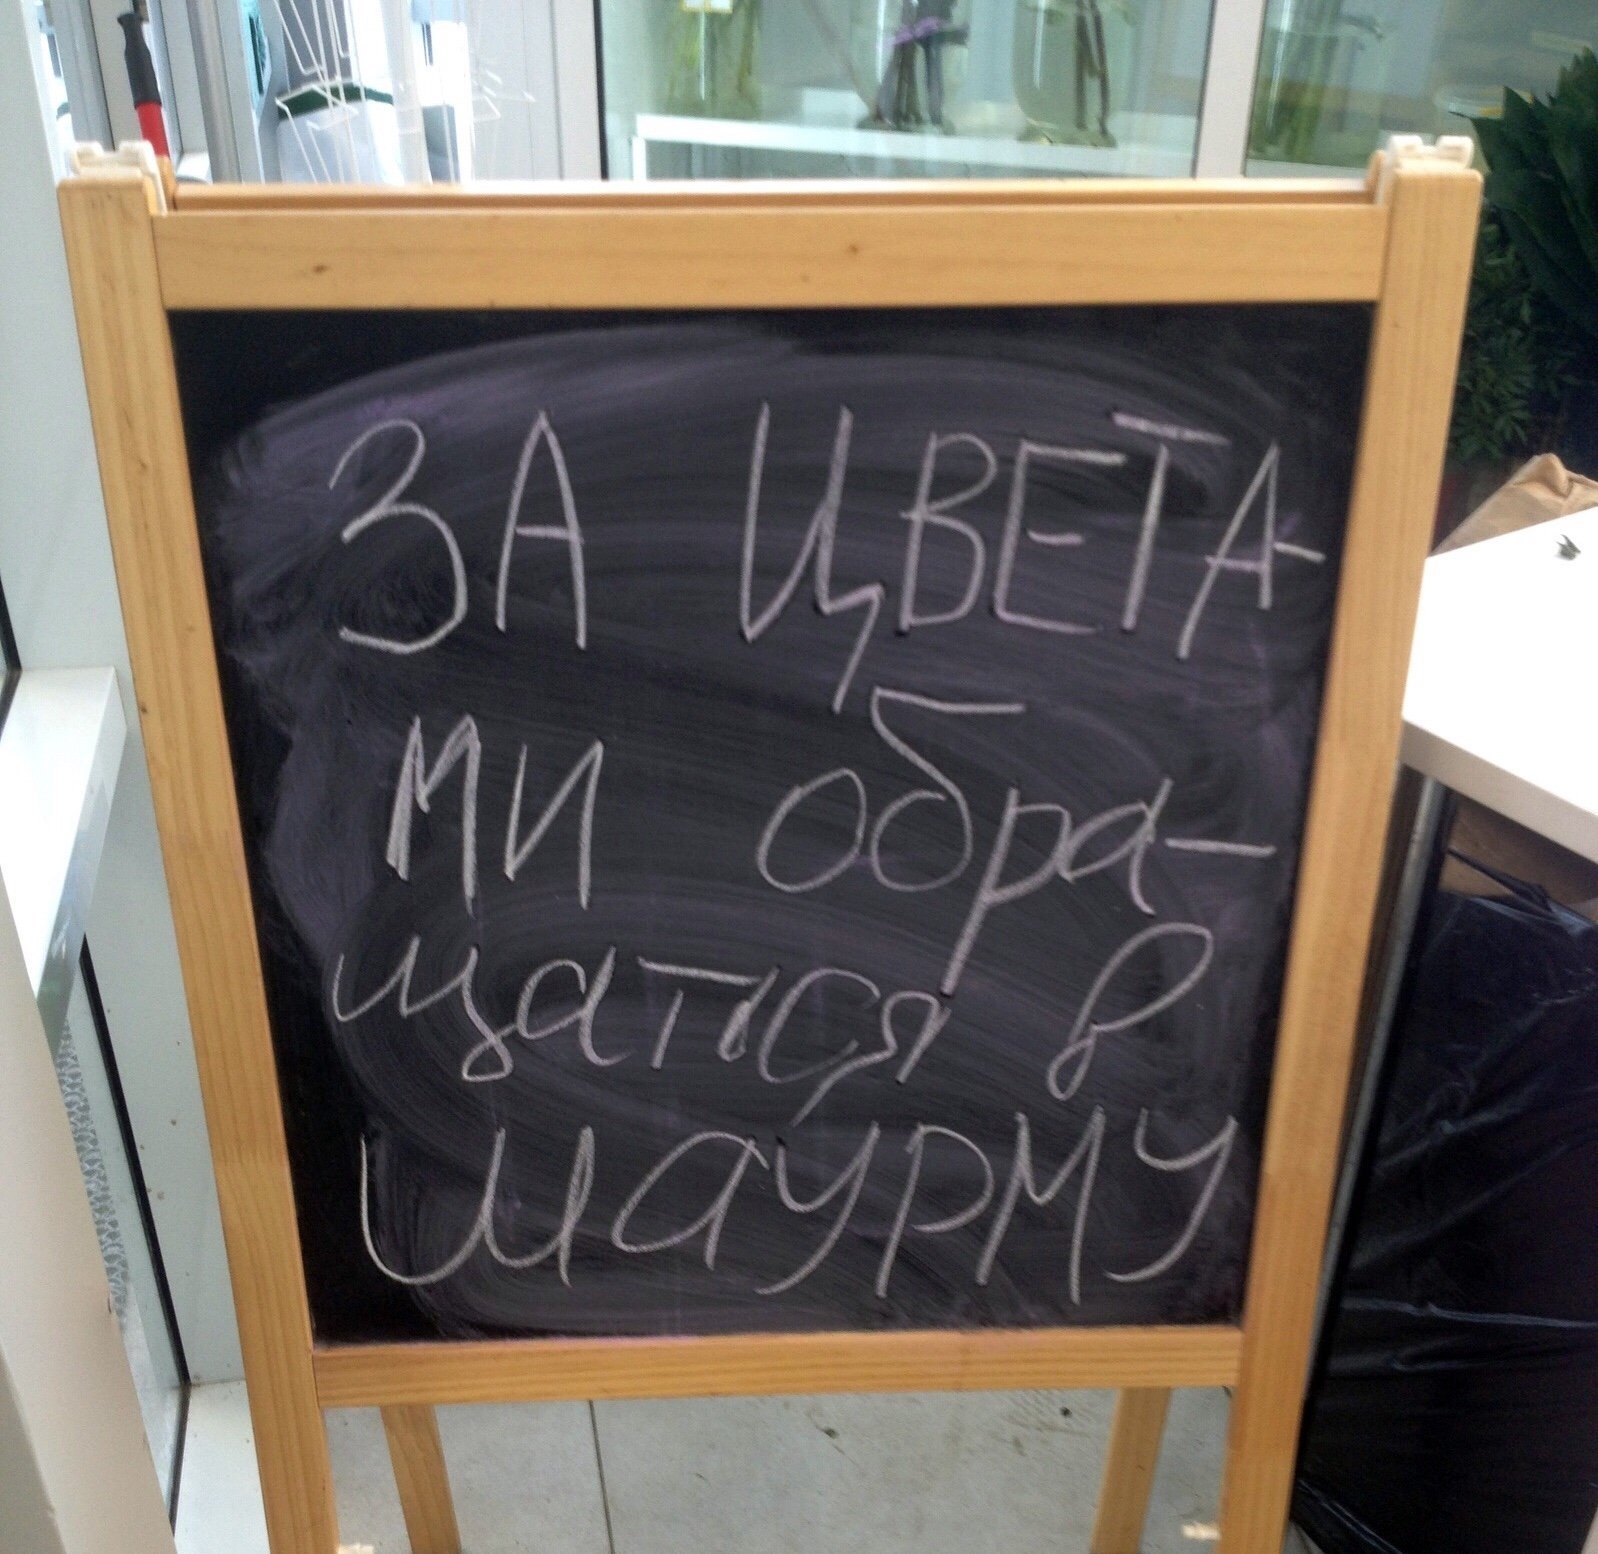 ЗА ЦВЕТА
МИ обра-
щатся в
шаурму